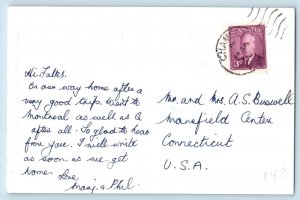 Hi Folks.
On our way home after a
very good trip. Went to
Montreal as well as Q
after all. So glad to hear
from you. I will write
as soon as we get
home. Love,
Marj. & Phil.
Mr. and Mrs. A.S. Buswell
Mansfield Center
Connecticut
U.S.A.
CANADA
3
CHAM